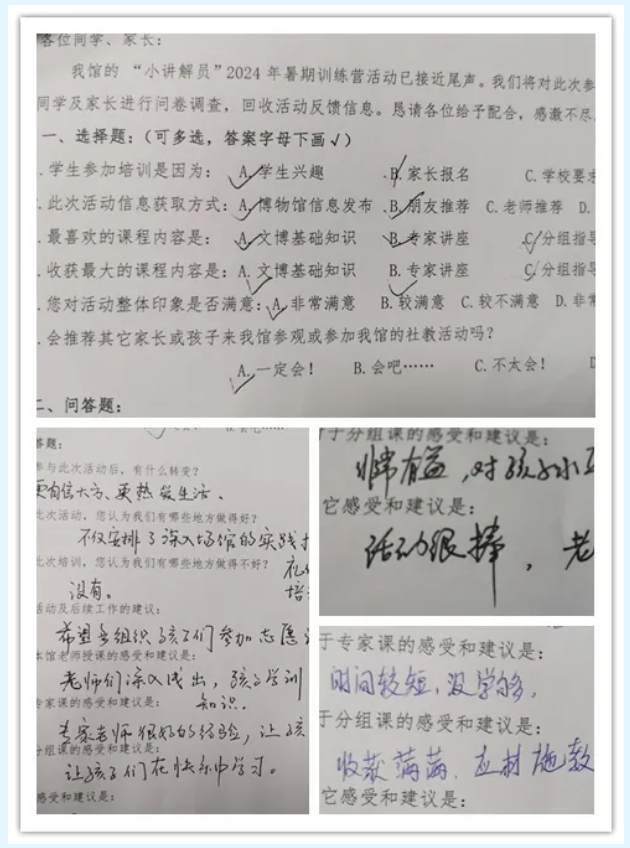 各位同学、家长：
我馆的“小讲解员”2024年暑期训练营活动已接近尾声。我们将对此次参
同学及家长进行问卷调查，回收活动反馈信息。恳请各位给予配合，感激不尽
一、选择题：（可多选，答案字母下画√）
.学生参加培训是因为： A.学生兴趣 B.家长报名 C.学校要求
.此次活动信息获取方式：A.博物馆信息发布 B.朋友推荐 C.老师推荐 D.
.最喜欢的课程内容是： A.文博基础知识 B.专家讲座 C.分组指导
.收获最大的课程内容是：A.文博基础知识 B.专家讲座 C.分组指导
.您对活动整体印象是否满意：A.非常满意 B.较满意 C.较不满意 D.非常
.会推荐其它家长或孩子来我馆参观或参加我馆的社教活动吗？
A.一定会！ B.会吧…… C.不太会！
二、问答题：
答题：
参与此次活动后，有什么转变？
更自信大方、更热爱生活。
此次活动，您认为我们有哪些地方做得好？
不仅安排了深入场馆的实践
此次培训，您认为我们有哪些地方做得不好？
没有。
培
活动及后续工作的建议：
希望多组织孩子们参加志愿
本馆老师授课的感受和建议是：
老师们深入浅出，孩子学到
知识.
专家课的感受和建议是：
专家老师很好的经验，让孩
分组课的感受和建议是：
让孩子们在快乐中学习。
感受和建议是：
于分组课的感受和建议是：
非常有益，对孩子
它感受和建议是：
活动很棒，老
于专家课的感受和建议是：
时间较短，没学够。
于分组课的感受和建议是：
收获满满，应材施教
它感受和建议是：